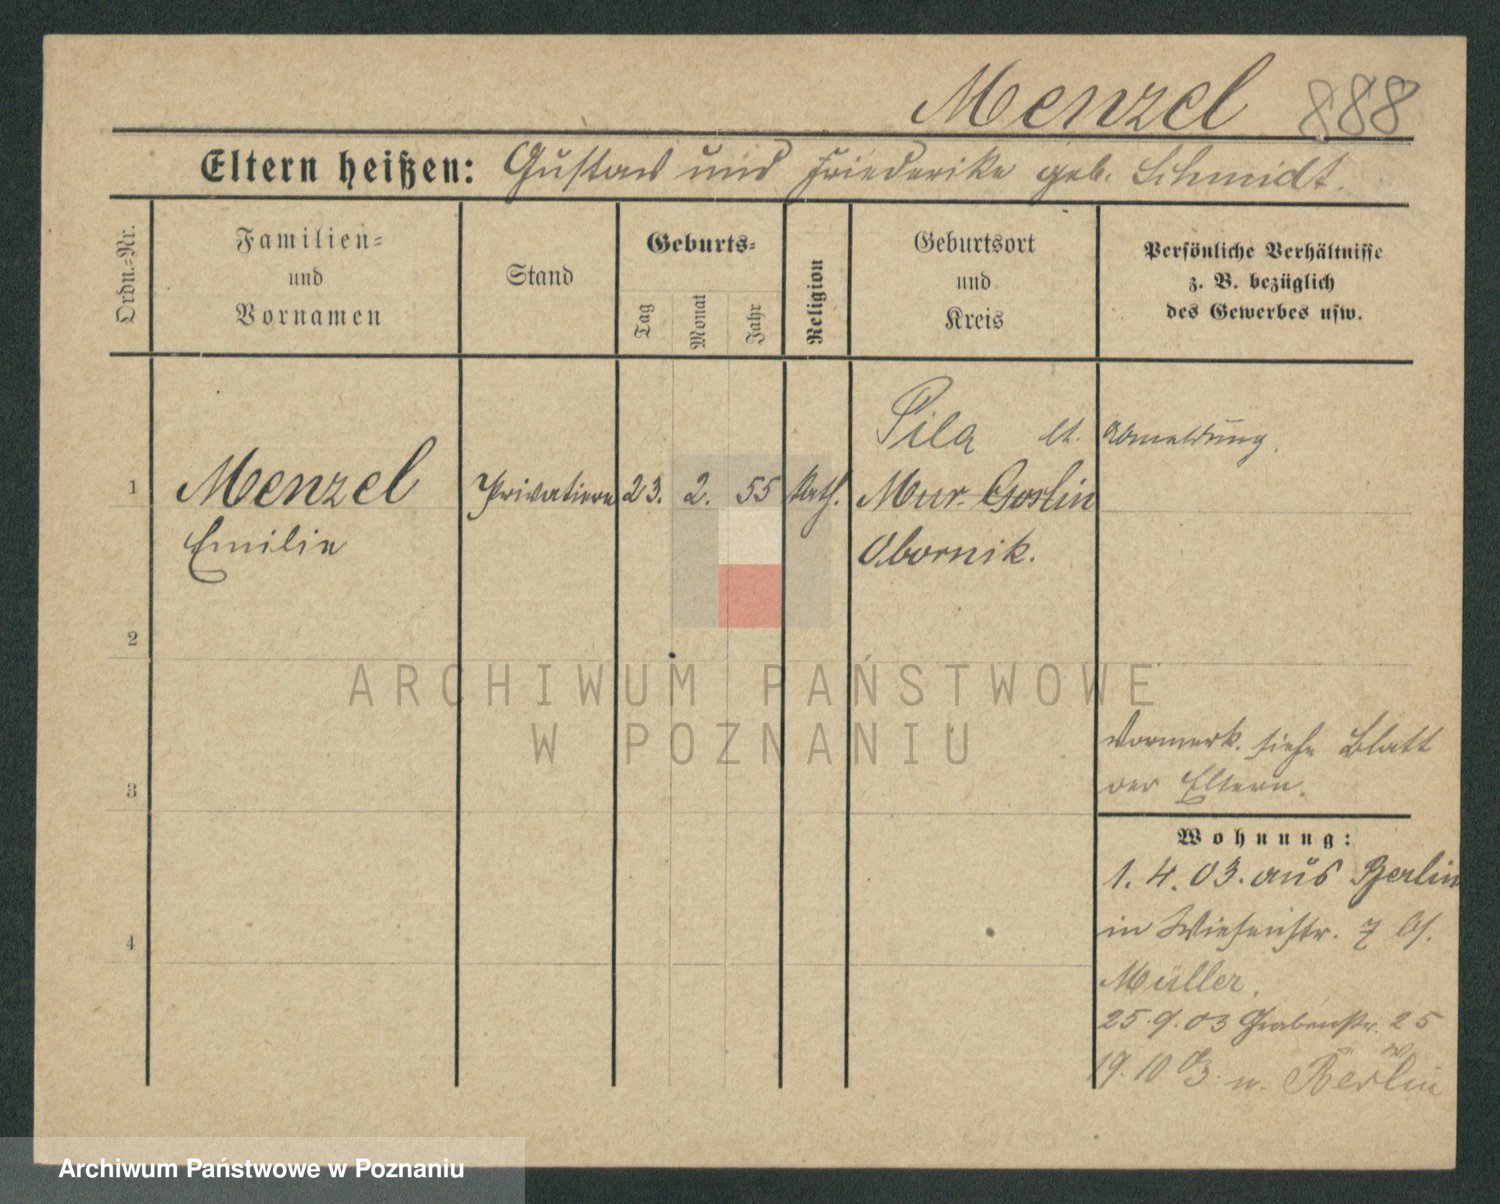 Menzel 888
Eltern heißen: Gustav und Friederike geb. Schmidt.
Ordn.-Nr.
Familien-
und
Vornamen
Stand
Geburts-
Tag
Monat
Jahr
Religion
Geburtsort
und
Kreis
Persönliche Verhältnisse
z. B. bezüglich
des Gewerbes usw.
Pila lt. Abmeldung.
1 Menzel Privatiere 23. 2. 55 kath. Mur. Goslin
Emilie Obornik.
2
3
Vormerk. siehe Blatt
der Eltern.
Wohnung:
1. 4. 03. aus Berlin
in Wiesenstr. 7 bf.
4
Müller.
25. 9. 03 Grabenstr. 25
19. 10 03. n. Berlin
ARCHIWUM PAŃSTWOWE
W POZNANIU
Archiwum Państwowe w Poznaniu